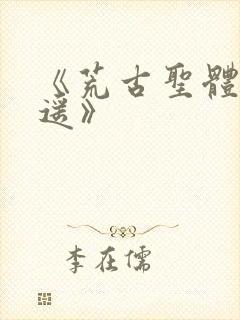 《荒古聖體
遥》
李在儒